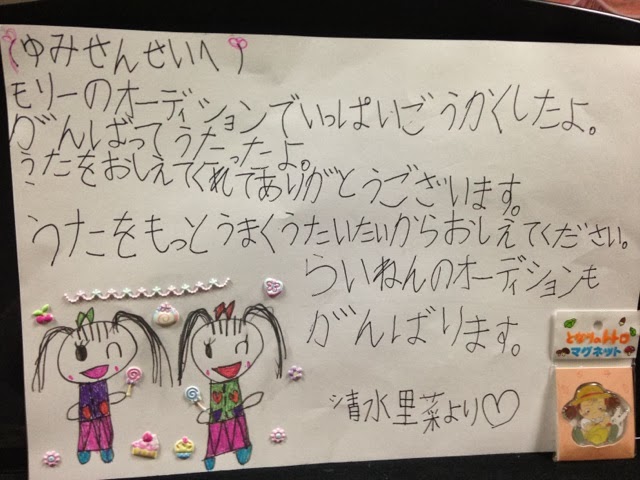 ゆみせんせいへ
モリーのオーディションでいっぱいごうかくしたよ。
がんばってうたったよ。
うたをおしえてくれてありがとうございます。
うたをもっとうまくうたいたいからおしえてください。
らいねんのオーディションも
がんばります。
清水里菜より♡
となりのトトロ
マグネット